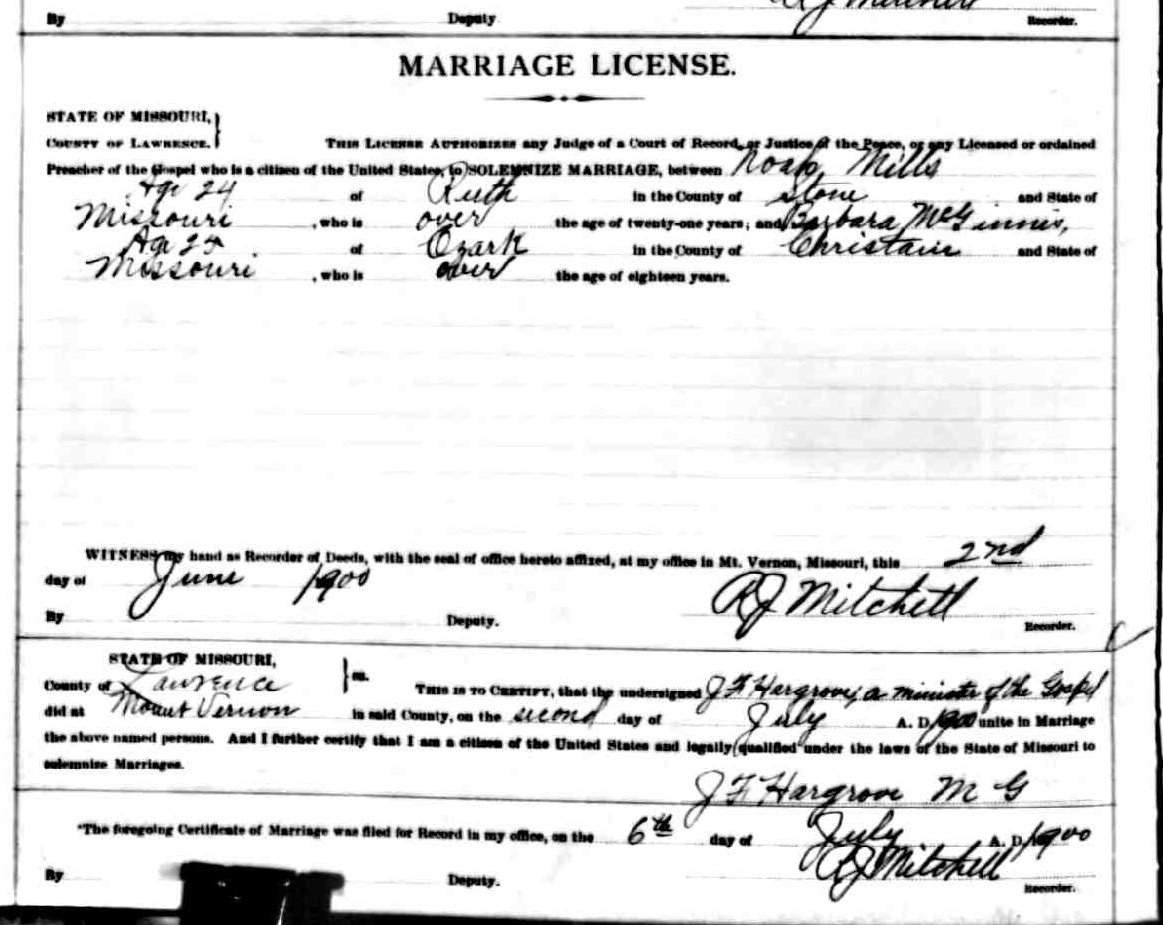 By Deputy Recorder.
MARRIAGE LICENSE.
STATE OF MISSOURI,
COUNTY OF LAWRENCE. THIS LICENSE AUTHORIZES any Judge of a Court of Record, or Justice of the Peace, or any Licensed or ordained
Preacher of the Gospel who is a citizen of the United States, to SOLEMNIZE MARRIAGE, between Noah Mills
Age 24 of Ruth in the County of Stone and State of
Missouri, who is over the age of twenty-one years; and Barbara McGinnis,
Age 25 of Ozark in the County of Christain and State of
Missouri, who is over the age of eighteen years.
WITNESS my hand as Recorder of Deeds, with the seal of office hereto affixed, at my office in Mt. Vernon, Missouri, this 2nd
day of June 1900 R J Mitchell
By Deputy. Recorder.
STATE OF MISSOURI,
County of Lawrence ss. THIS IS TO CERTIFY, that the undersigned J F Hargrove, a minister of the Gospel
did at Mount Vernon in said County, on the second day of July A. D. 1900 unite in Marriage
the above named persons. And I further certify that I am a citizen of the United States and legally qualified under the laws of the State of Missouri to
solemnize Marriages.
J F Hargrove M G
The foregoing Certificate of Marriage was filed for Record in my office, on the 6th day of July A. D. 1900
R J Mitchell
By Deputy. Recorder.